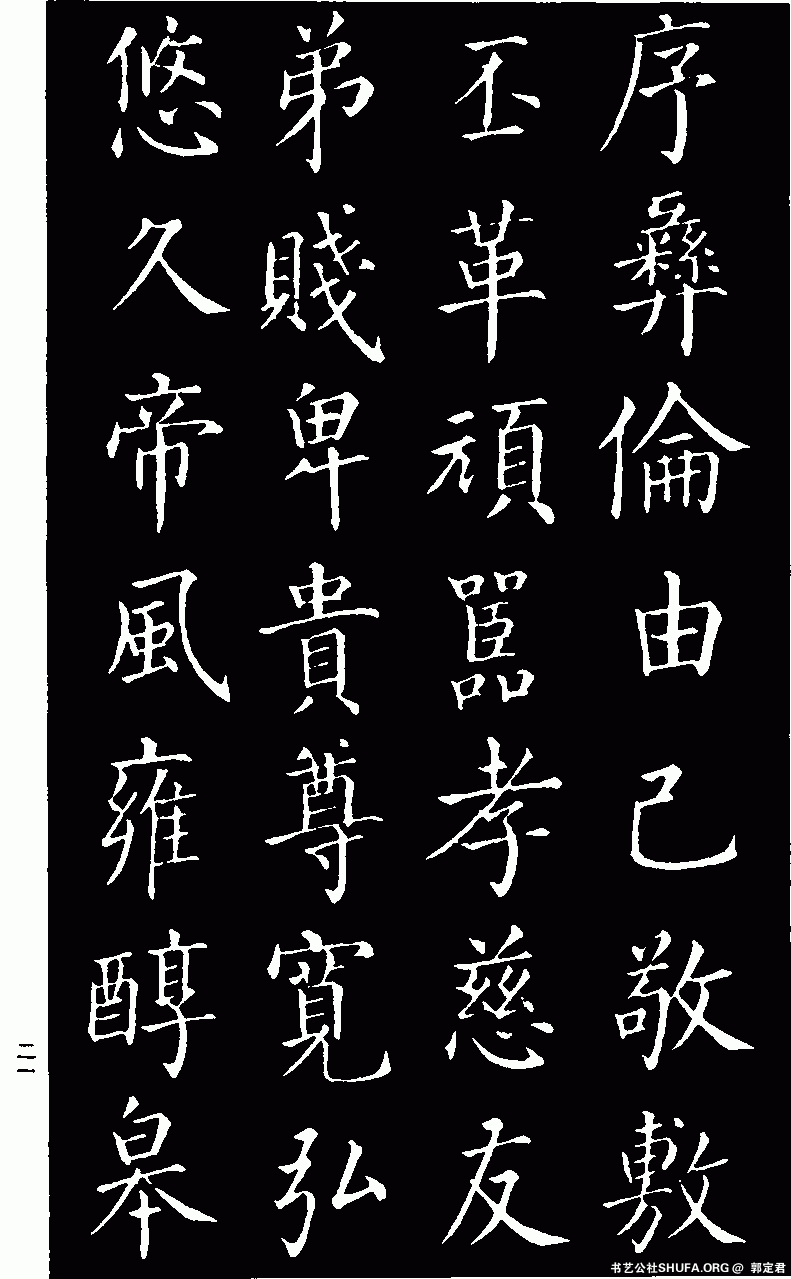 序彝倫由己敬敷
丕革頑嚚孝慈友
弟賤卑貴尊寬弘
悠久帝風雍醇皋
二一
书艺公社SHUFA.ORG @ 郭定君